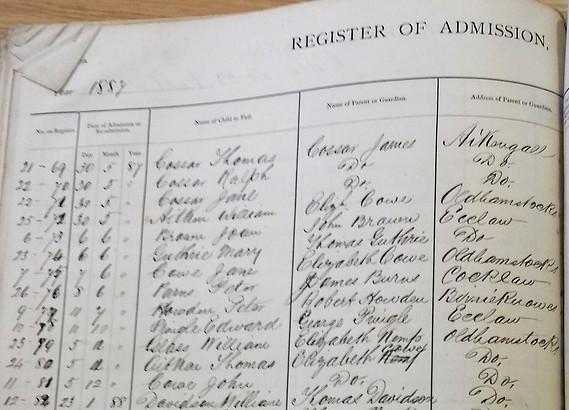 REGISTER OF ADMISSION,
Year 1887
No. on Register. Date of Admission or Re-admission. Name of Child in Full. Name of Parent or Guardian. Address of Parent or Guardian.
Day. Month. Year.
21-69 30 5 87 Cossar Thomas Cossar James Aikengall
22-70 30 5 " Cossar Ralph Do. Do.
30 5 " Cossar Jane Do. Do.
25-72 30 5 " William Cowe Oldhamstocks
6-73 6 6 " Brown John John Brown Ecclaw
23-74 6 6 " Guthrie Mary Thomas Guthrie Do.
7-75 7 6 " Cowe Jane Elizabeth Cowe Oldhamstocks
26-76 8 6 " Burns Peter James Burns Cocklaw
9-77 11 7 " Howden Peter Robert Howden Birnieknowes
10-78 11 10 " Pringle Edward George Pringle Ecclaw
23-79 5 " William Elizabeth Oldhamstocks
24-80 5 " Thomas Elizabeth Do.
11-81 5 12 " Cowe John Do. Do.
12-82 23 1 88 Davidson William Thomas Davidson Do.